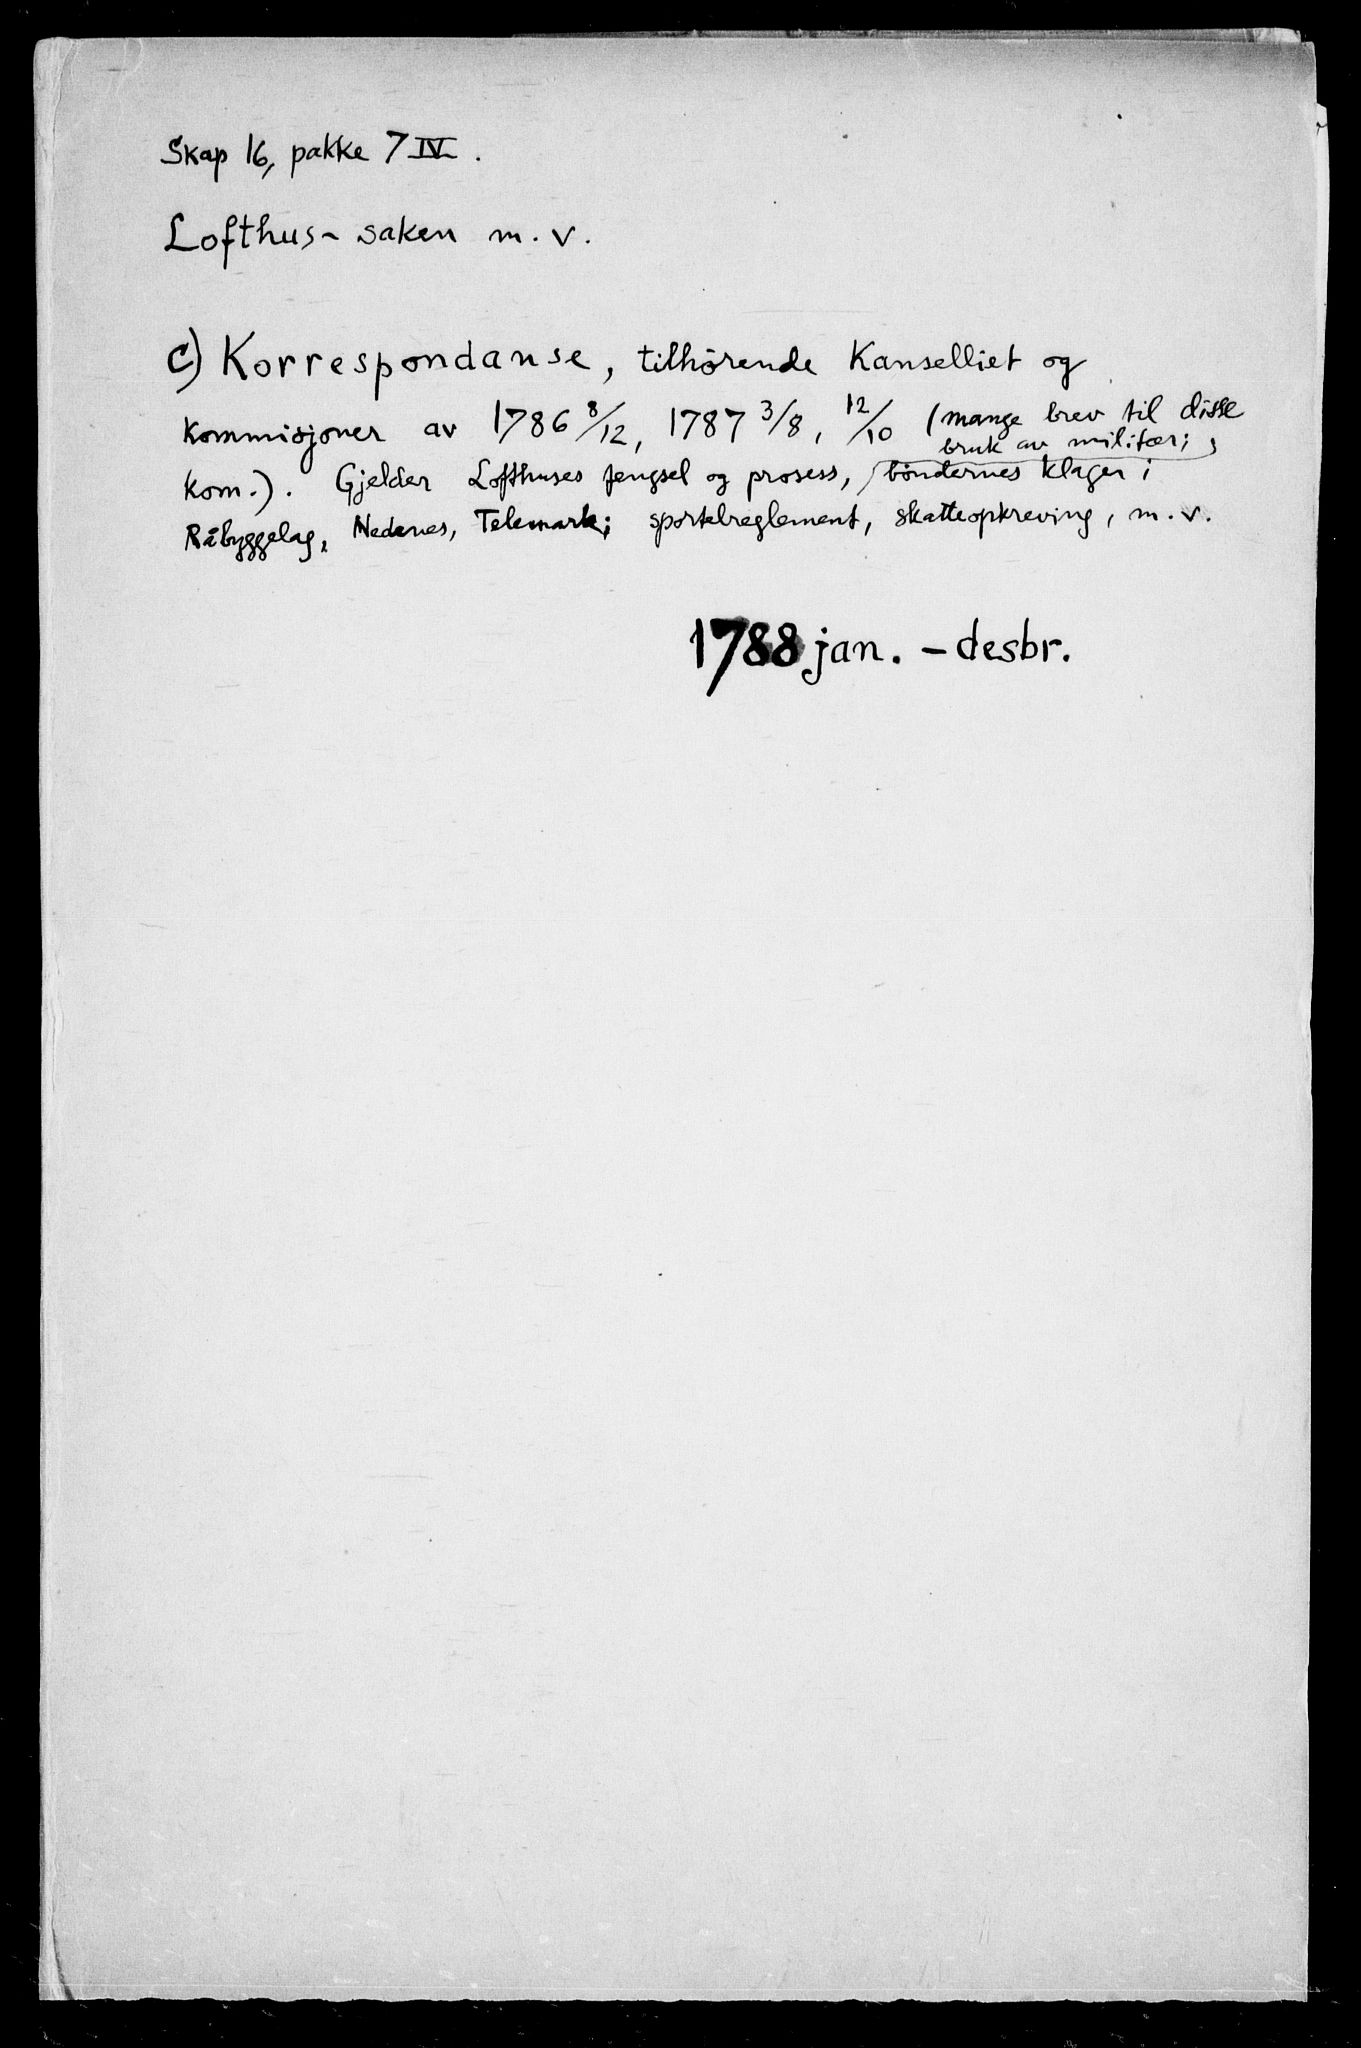 Skap 16, pakke 7 IV.
Lofthus-saken m.v.
c) Korrespondanse, tilhørende Kanselliet og
kommisjoner av 1786 8/12, 1787 3/8, 12/10 (mange brev til disse
bruk av militær;
kom.). Gjelder Lofthuses fengsel og prosess, bøndernes klager i
Råbyggelag, Nedenes, Telemark; sportelreglement, skatteopkreving, m.v.
1788 jan. - desbr.